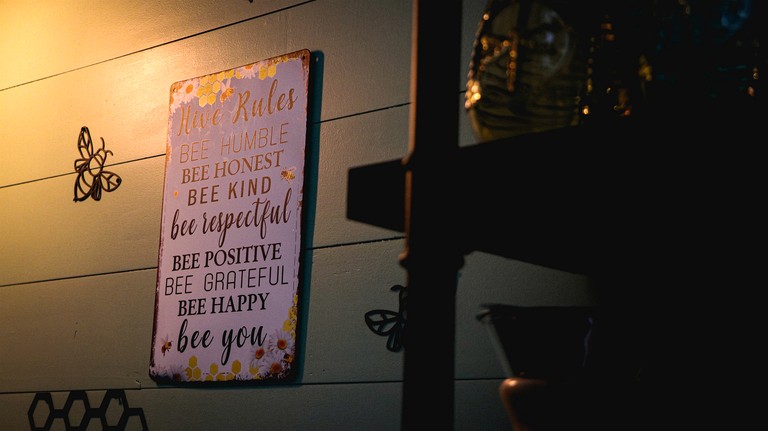 Hive Rules
BEE HUMBLE
BEE HONEST
BEE KIND
bee respectful
BEE POSITIVE
BEE GRATEFUL
BEE HAPPY
bee you